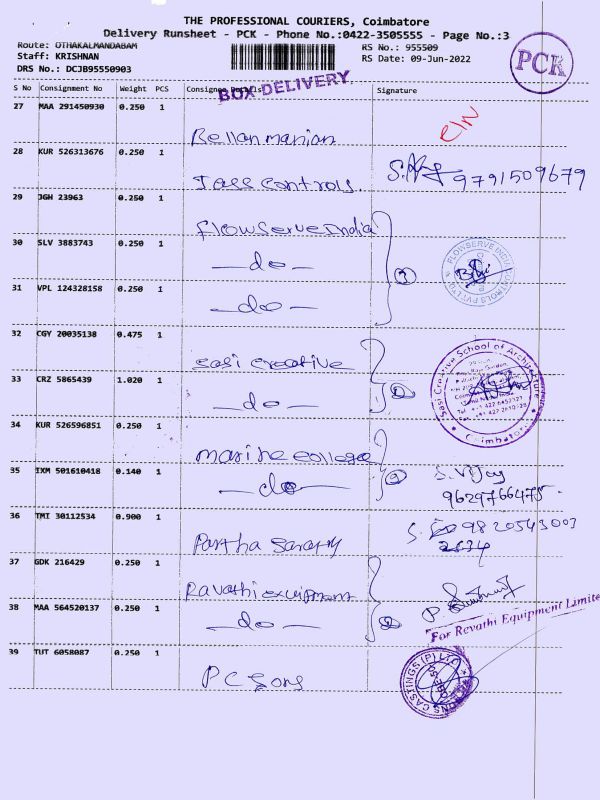 THE PROFESSIONAL COURIERS, Coimbatore
Delivery Runsheet - PCK - Phone No.:0422-3505555 - Page No.:3
Route: OTHAKALMANDABAM
Staff: KRISHNAN
DRS No.: DCJB95550903
RS No.: 955509
RS Date: 09-Jun-2022
PCK
BOX DELIVERY
S No Consignment No Weight PCS Consignee Details Signature
27 MAA 291450930 0.250 1
Bellanmanian
28 KUR 526313676 0.250 1
Jass controls.
9791509679
29 JGH 23963 0.250 1
flowserve India
30 SLV 3883743 0.250 1
—do—
FLOWSERVE INDIA CONTROLS PVT LTD
31 VPL 124328158 0.250 1
—do—
32 CGY 20035138 0.475 1
sasi creative
Sasi Creative School of Architecture
Coimbatore
33 CRZ 5865439 1.020 1
—do—
34 KUR 526596851 0.250 1
marine college
35 IXM 501610418 0.140 1
—do—
S. Vijay
9629766475
36 TMT 30112534 0.900 1
Partha Sarathy
9820543003
37 GDK 216429 0.250 1
Ravathi equipment
38 MAA 564520137 0.250 1
—do—
For Revathi Equipment Limite
39 TUT 6058087 0.250 1
P C Sons
CASTINGS (P) LTD